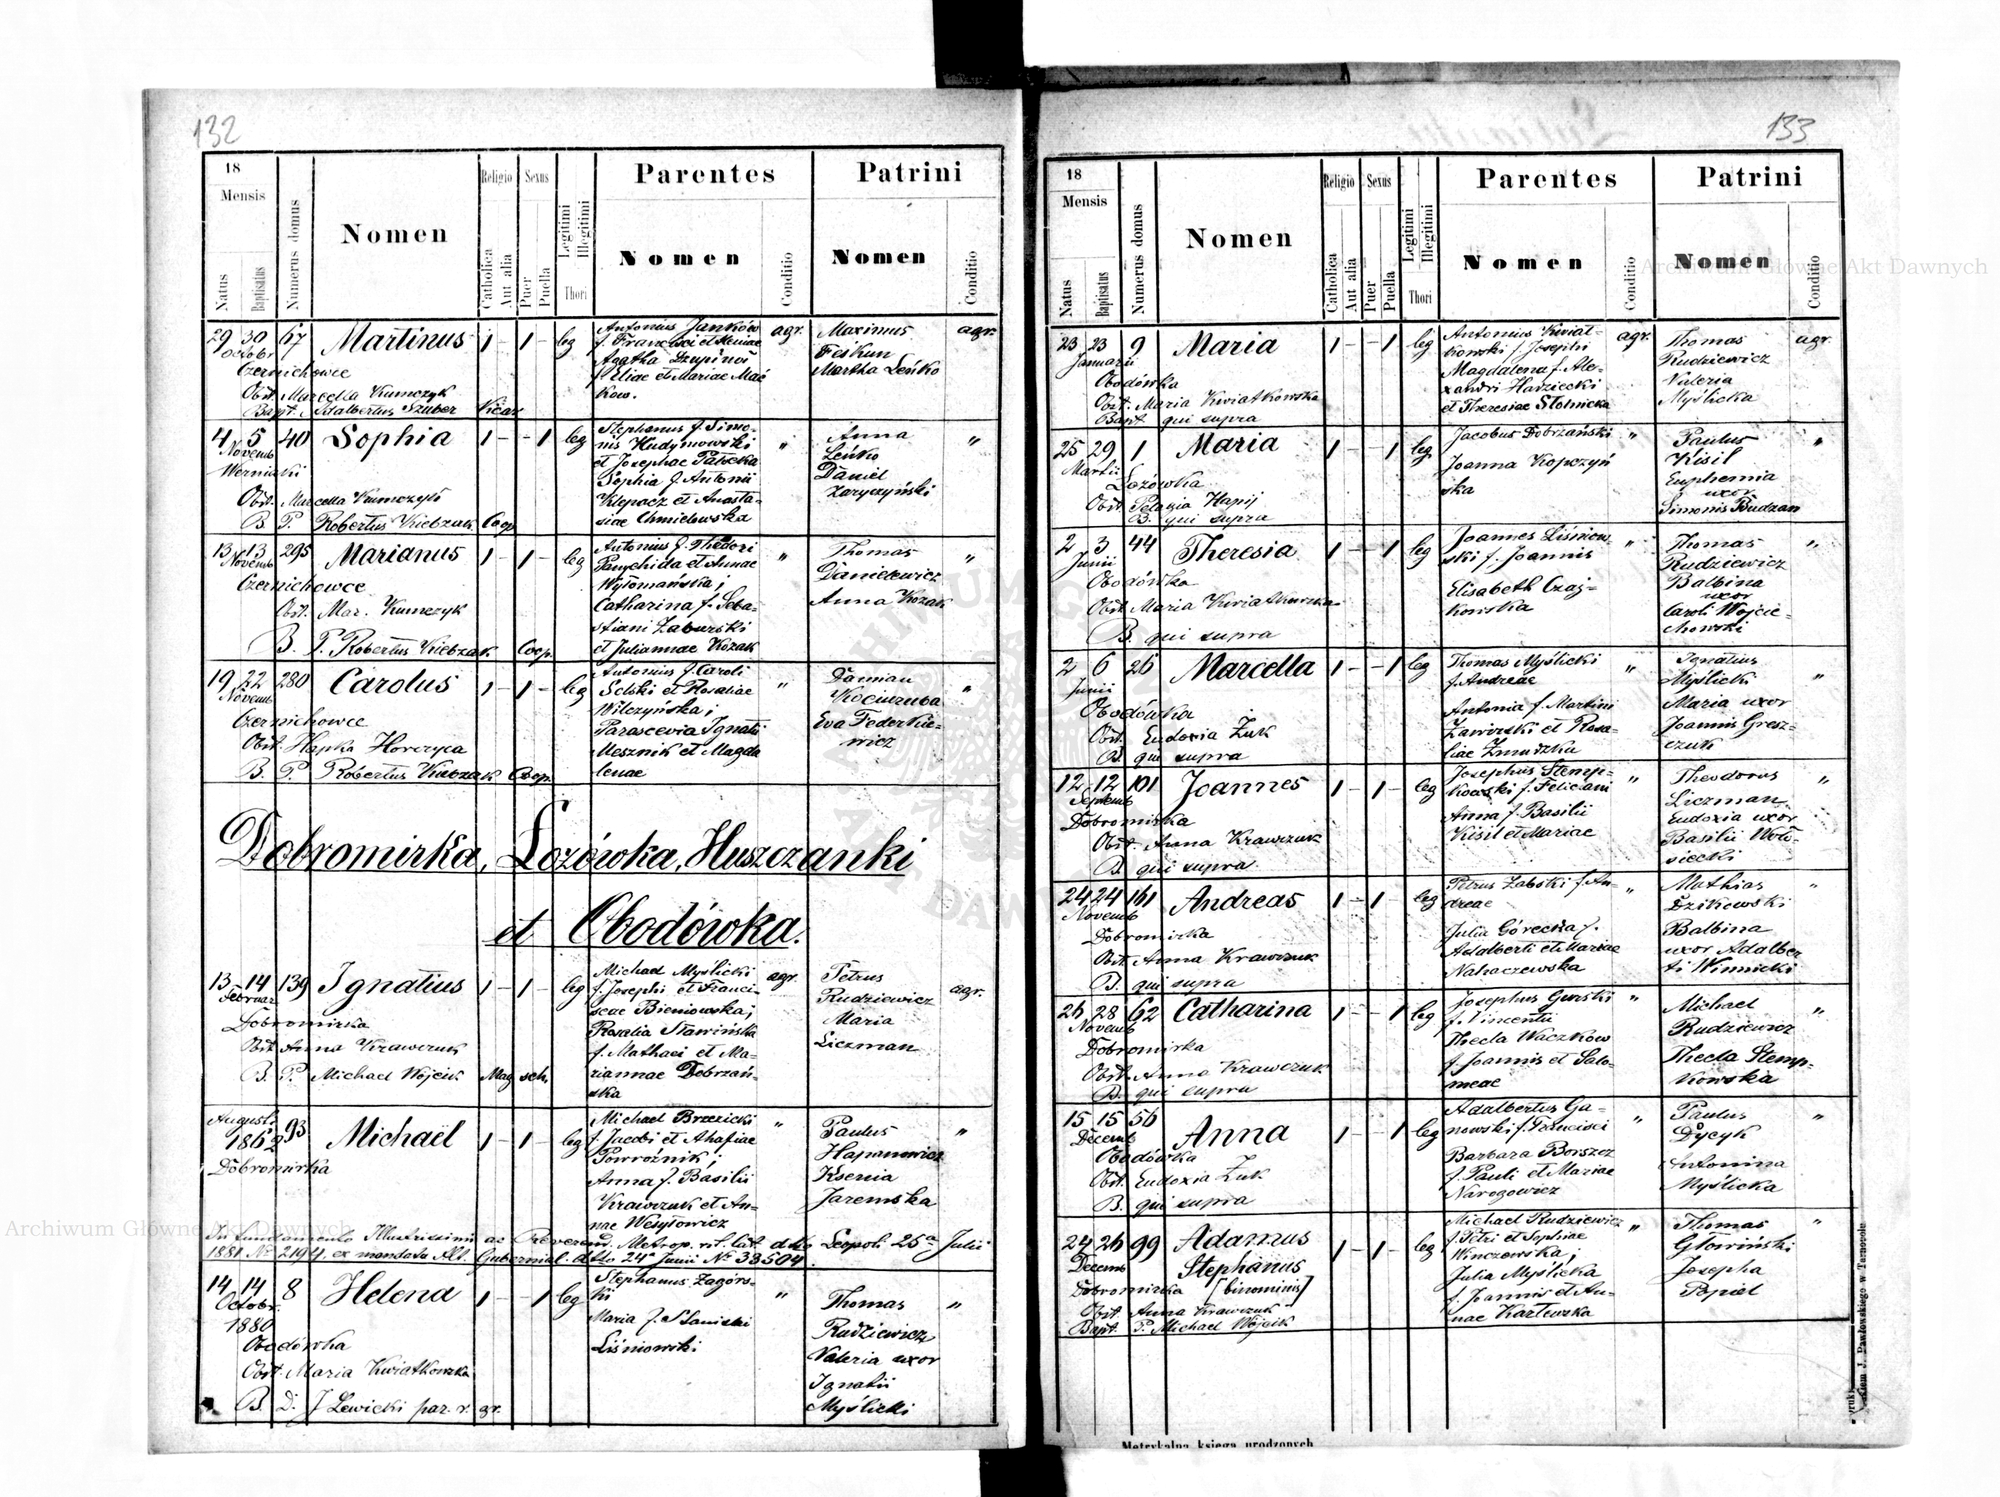 132
18
Mensis
Natus
Baptisatus
Numerus domus
Nomen
Religio
Catholica
Aut alia
Sexus
Puer
Puella
Legitimi
Illegitimi
Thori
Parentes
Nomen
Conditio
Patrini
Nomen
Conditio
29 30 67 Martinus 1 – 1 – leg
Octobr
Czernichowce
Obst. Marcella Kumczyk
Bapt. Adalbertus Szuber Vicar
Antonius Janków agr.
f. Francisci et
Agatha
f. Eliae et Mariae Mać
kow.
Maximus agr.
Feskun
Martha Leńko
4 5 40 Sophia 1 – – 1 leg
Novemb
Werniaki
Obst. Marcella Kumczyk
B. P. Robertus Kiebzak Coop
Stephanus f. Simo- "
nis Hudymowski
et Josephae Patocka
Sophia f. Antonii
Klepacz et Anasta-
siae Chmielowska
Anna "
Leńko
Daniel
Zaryczyński
13 13 295 Marianus 1 – 1 – leg
Novemb
Czernichowce
Obst. Mar. Kumczyk
B. P. Robertus Kiebzak Coop.
Antonius f. Thedori "
Panychida et Annae
Wytomańska;
Catharina f. Seba-
stiani Zaburski
et Juliannae Kozak
Thomas "
Danielewicz
Anna Kozak
19 22 280 Carolus 1 – 1 – leg
Novemb
Czernichowce
Obst. Hapka Horczyca
B. P. Robertus Kiebzak Coop.
Antonius f. Caroli "
Solski et Rosaliae
Wilczyńska;
Parascevia Ignatii
Mesznik et Magda
lenae
Damian "
Kociuruba
Eva Federkie-
wicz
Dobromirka, Łozówka, Huszczanki
et Obodówka.
13 14 139 Ignatius 1 – 1 – leg
Februar
Dobromirka
Obst. Anna Krawczuk
B. P. Michael Wojcik Mag sch.
Michael Myślicki agr.
f. Josephi et Franci-
scae Bieniowska;
Rosalia Stawińska
f. Mathaei et Ma-
riannae Dobrzań-
ska
Petrus
Rudziewicz agr.
Maria
Liczman
August.
1862 93 Michaël 1 – 1 – leg
Dobromirka
Michael Brzezicki "
f. Jacobi et Ahafiae
Powroźnik;
Anna f. Basilii
Krawczuk et An-
nae Wesyłowicz
Paulus "
Hapanowicz
Ksenia
Jaremska
In fundamento Illustrissimi ac Reverend. Metrop. rit. lat. dtto Leopoli 25a Julii
1881 No 2194, ex mandato Alt. Gubernial. dtto 24 Junii No 38504.
14 14 8 Helena 1 – – 1 leg
Octobr.
1880
Obodówka
Obst. Maria Kwiatkowska
B. D. J Lewicki par. r. gr.
Stephanus Zagórs- "
ki
Maria f. Stanislai
Liśniowski
Thomas "
Rudziewicz
Valeria uxor
Ignatii
Myślicki
133
18
Mensis
Natus
Baptisatus
Numerus domus
Nomen
Religio
Catholica
Aut alia
Sexus
Puer
Puella
Legitimi
Illegitimi
Thori
Parentes
Nomen
Conditio
Patrini
Nomen
Conditio
23 23 9 Maria 1 – – 1 leg
Januarii
Obodówka
Obst. Maria Kwiatkowska
Bapt. qui supra
Antonius Kwiat- agr.
kowski f. Josephi
Magdalena f. Ale-
xandri Hadziecki
et Theresiae Stolnicka
Thomas agr.
Rudziewicz
Valeria
Myślicka
25 29 1 Maria 1 – – 1 leg
Martii
Łozówka
Obst. Pelagia Hapij
B. qui supra
Jacobus Dobrzański "
Joanna Kopczyń
ska
Paulus "
Kisil
Euphemia
uxor
Simonis Budzan
2 3 44 Theresia 1 – – 1 leg
Junii
Obodówka
Obst. Maria Kwiatkowska
B. qui supra
Joannes Liśniow- "
ski f. Joannis
Elisabeth Czaj-
kowska
Thomas "
Rudziewicz
Balbina
uxor
Caroli Wojcie-
chowski
2 6 26 Marcella 1 – – 1 leg
Junii
Obodówka
Obst. Eudoxia Żuk
B. qui supra
Thomas Myślicki "
f. Andreae
Antonia f. Martini
Zawirski et Rosa-
liae Zmurzka
Ignatius
Myślicki "
Maria uxor
Joannis Gresz-
czuk
12 12 101 Joannes 1 – 1 – leg
Septemb
Dobromirka
Obst. Anna Krawczuk
B. qui supra
Josephus Stemp- "
kowski f. Feliciani
Anna f. Basilii
Kisil et Mariae
Theodorus "
Liczman
Eudoxia uxor
Basilii Woło-
siecki
24 24 161 Andreas 1 – 1 – leg
Novemb
Dobromirka
Obst. Anna Krawczuk
B. qui supra
Petrus Zabski f. An- "
dreae
Julia Górecka f.
Adalberti et Mariae
Nahaczewska
Mathias "
Dzikowski
Balbina
uxor Adalber
ti Winnicki
26 28 62 Catharina 1 – – 1 leg
Novemb
Dobromirka
Obst. Anna Krawczuk
B. qui supra
Josephus Gurski "
f. Vincentii
Thecla Waczkow
f. Joannis et Salo-
meae
Michael "
Rudziewicz
Thecla Stemp-
kowska
15 15 56 Anna 1 – – 1 leg
Decemb
Obodówka
Obst. Eudoxia Żuk
B. qui supra
Adalbertus Ga- "
nowski f. Francisci
Barbara Borszcz
f. Pauli et Mariae
Narogowicz
Paulus "
Dycyk
Antonina
Myślicka
24 26 99 Adamus 1 – 1 – leg
Decemb Stephanus
Dobromirka [binominis]
Obst. Anna Krawczuk
Bapt. P. Michael Wojcik
Michael Rudziewicz "
f. Petri et Sophiae
Winczowska;
Julia Myślicka
f. Joannis et An-
nae Karlewska
Thomas "
Głowiński
Josepha
Popiel
Metrykalna księga urodzonych
J. Pawłowskiego w Tarnopolu
Archiwum Główne Akt Dawnych
Archiwum Główne Akt Dawnych